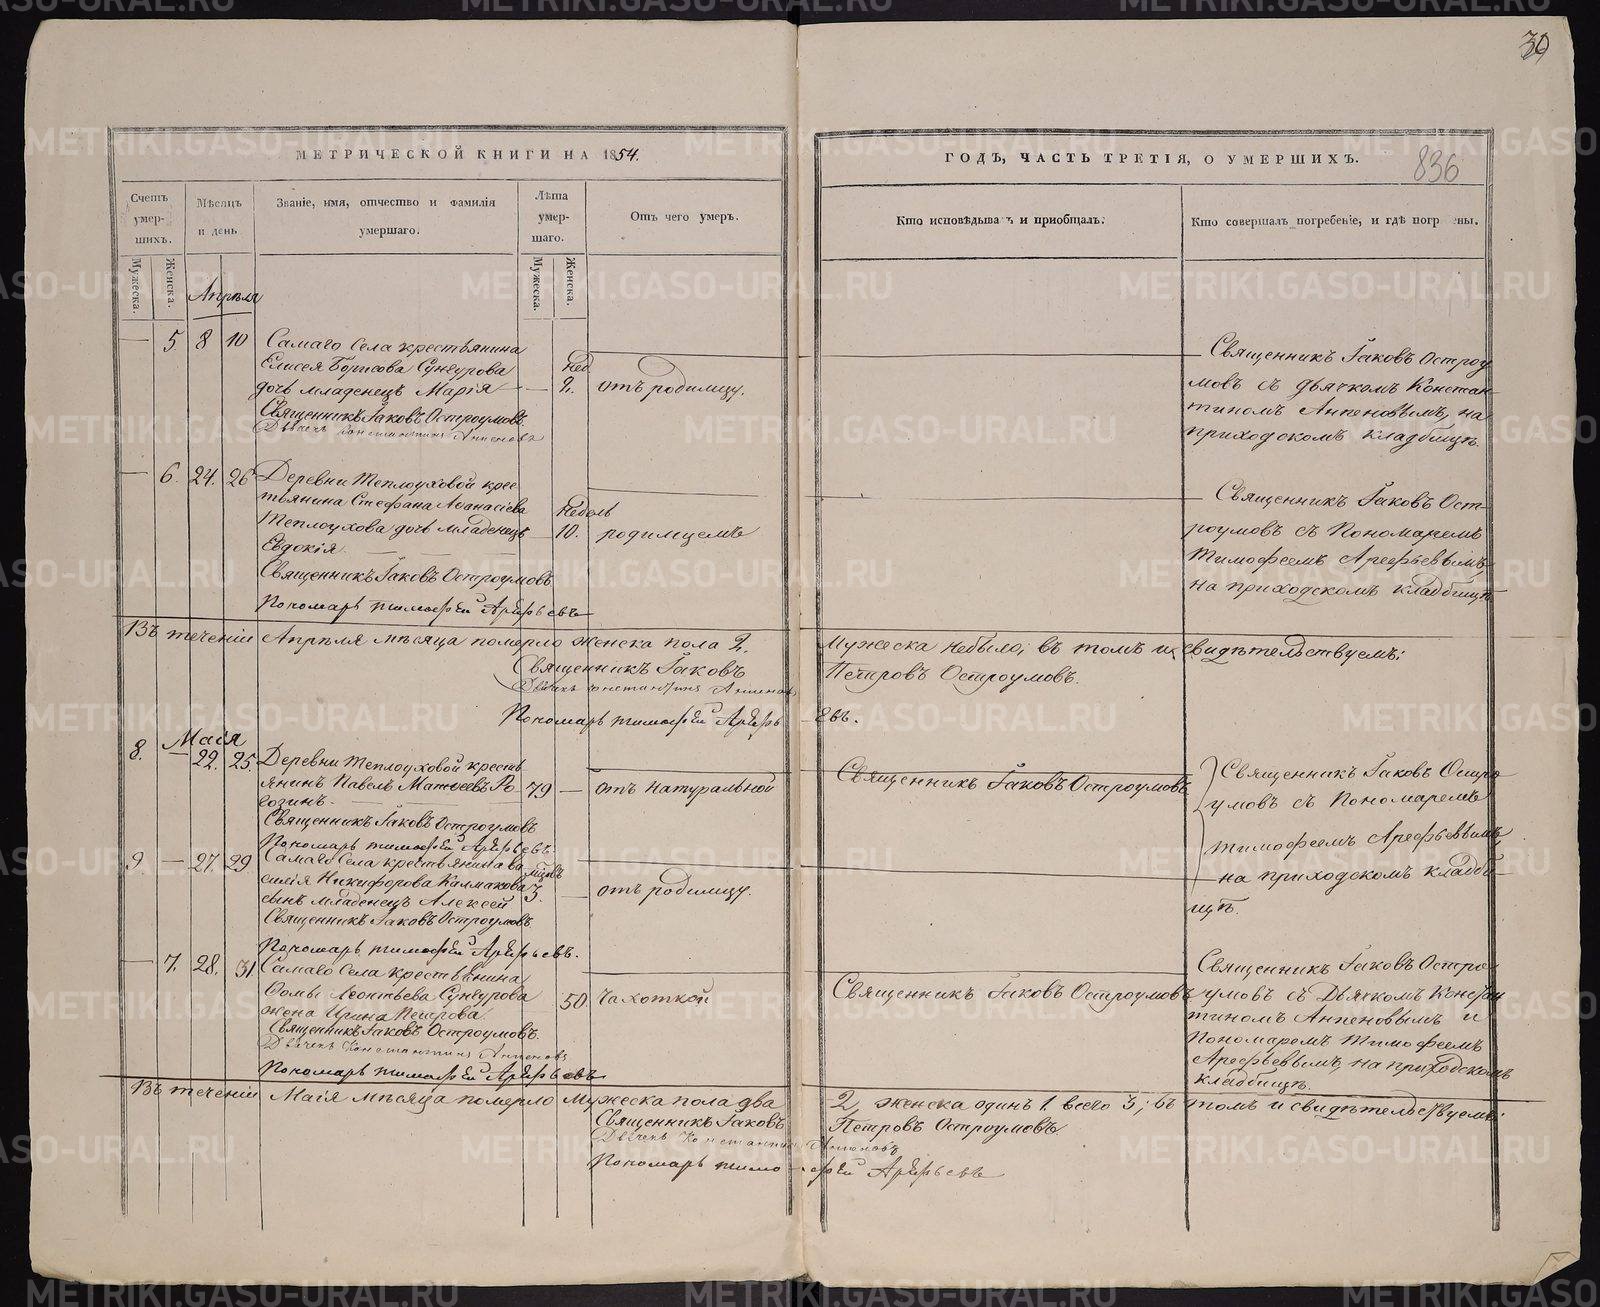 30
МЕТРИЧЕСКОЙ КНИГИ НА 1854.
ГОДЪ, ЧАСТЬ ТРЕТІЯ, О УМЕРШИХЪ.
836
Счетъ умер-шихъ.
Мужеска.
Женска.
Мѣсяцъ и день
Званіе, имя, отчество и фамилія умершаго.
Лѣта умер-шаго.
Мужеска.
Женска.
Отъ чего умеръ.
Кто исповѣдыва ъ и пріобщалъ.
Кто совершалъ погребеніе, и гдѣ погр ены.
Апрѣля
— 5 8 10
Самаго Села крестьянина
Елисея Борисова Сунгурова
дочь младенецъ Марія
Священникъ Іаковъ Остроумовъ
Дьячекъ Константинъ Анпеновъ
Нед.
2.
отъ родимцу.
Священникъ Іаковъ Остроу
мовъ съ дьячкомъ Констан
тиномъ Анпеновымъ, на
приходскомъ кладбищѣ.
— 6. 24. 26
Деревни Теплоуховой крес
тьянина Стефана Аѳанасіева
Теплоухова дочь младенецъ
Евдокія.
Священникъ Іаковъ Остроумовъ
Пономарь Тимофей Арефьевъ
Недель
10.
родимцемъ
Священникъ Іаковъ Ост
роумовъ съ Пономаремъ
Тимофеемъ Арефьевымъ,
на приходскомъ кладбищѣ
Въ теченіи Апрѣля мѣсяца померло женска пола 2. Мужеска небыло; въ томъ и свидѣтельствуемъ:
Священникъ Іаковъ Петровъ Остроумовъ.
Дьячекъ Константинъ Анпеновъ
Пономарь Тимофей Арефьевъ.
Маія
8. — 22. 25.
Деревни Теплоуховой кресть
янинъ Павелъ Матѳеевъ Ро
созинъ.
Священникъ Іаковъ Остроумовъ
Пономарь Тимофей Арефьевъ
79 —
отъ натуральной
Священникъ Іаковъ Остроумовъ
Священникъ Іаковъ Остро
умовъ съ Пономаремъ
Тимофеемъ Арефьевымъ
на приходскомъ кладби
щѣ.
9. — 27. 29
Самаго Села крестьянина Ва
силія Никифорова Калмакова
сынъ младенецъ Алексей
Священникъ Іаковъ Остроумовъ
Пономарь Тимофей Арефьевъ.
мцовъ
3. —
отъ родимцу.
— 7. 28. 31
Самаго Села крестьянина
Ѳомы Леонтьева Сунгурова
жена Ирина Петрова.
Священникъ Іаковъ Остроумовъ.
Дьячекъ Константинъ Анпеновъ
Пономарь Тимофей Арефьевъ
50.
чахоткой
Священникъ Іаковъ Остроумовъ
Священникъ Іаковъ Остро
умовъ съ Дьячкомъ Констан
тиномъ Анпеновымъ и
Пономаремъ Тимофеемъ
Арефьевымъ, на приходскомъ
кладбищѣ.
Въ теченіи Маія мѣсяца померло мужеска пола два 2, женска одинъ 1. всего 3; въ томъ и свидѣтельствуемъ:
Священникъ Іаковъ Петровъ Остроумовъ.
Дьячекъ Константинъ Анпеновъ
Пономарь Тимофей Арефьевъ